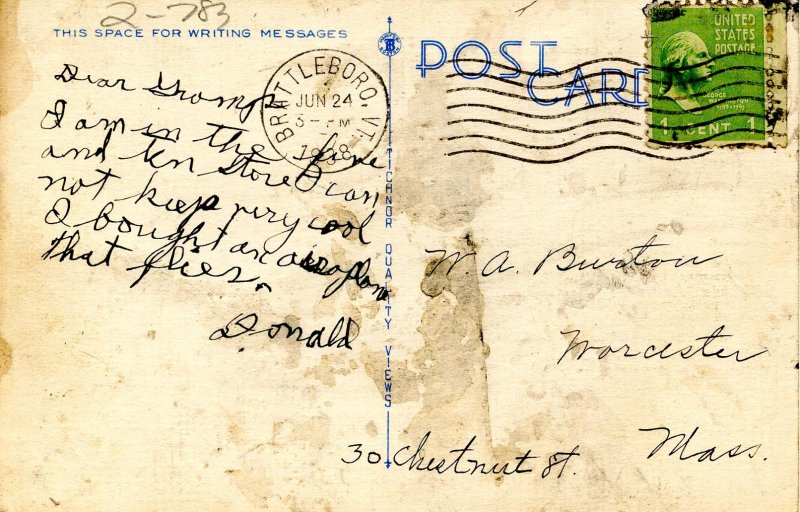 2-783
THIS SPACE FOR WRITING MESSAGES
POST CARD
UNITED
STATES
POSTAGE
GEORGE
WASHINGTON
1 CENT 1
BRATTLEBORO, VT.
JUN 24
3-PM
1938
TICHNOR QUALITY VIEWS
Dear Gramp
I am in the fine
and ten store I can
not keep very cool
I bought an airoplane
that flies.
Donald
W. A. Burton
Worcester
Mass.
30 Chestnut St.